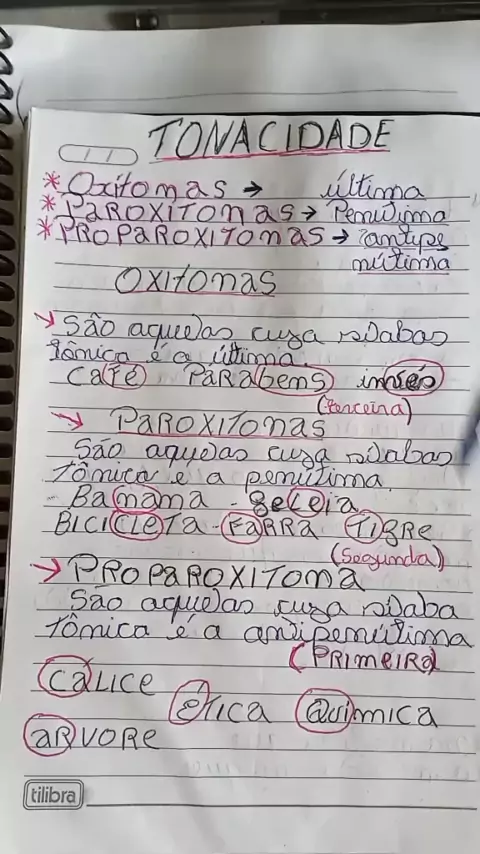 TONACIDADE
*Oxítonas → última
*PAROXITONAS → Penúltima
*PROPAROXITONAS → antipe
núltima
OXITONAS
→ São aquelas cuza silabas
tômica é a última.
Café Parabems
(terceira)
→ PAROXITONAS
São aquelas cuza silabas
tômica é a penúltima
Banana - geleia
BICICLETA - FARRA TIGRE
(Segunda)
→ PROPAROXITONA
São aquelas cuza silaba
tômica é a antipenúltima
(PRIMEIRA)
CALICE
eTICA QUIMICA
aRVORE
tilibra